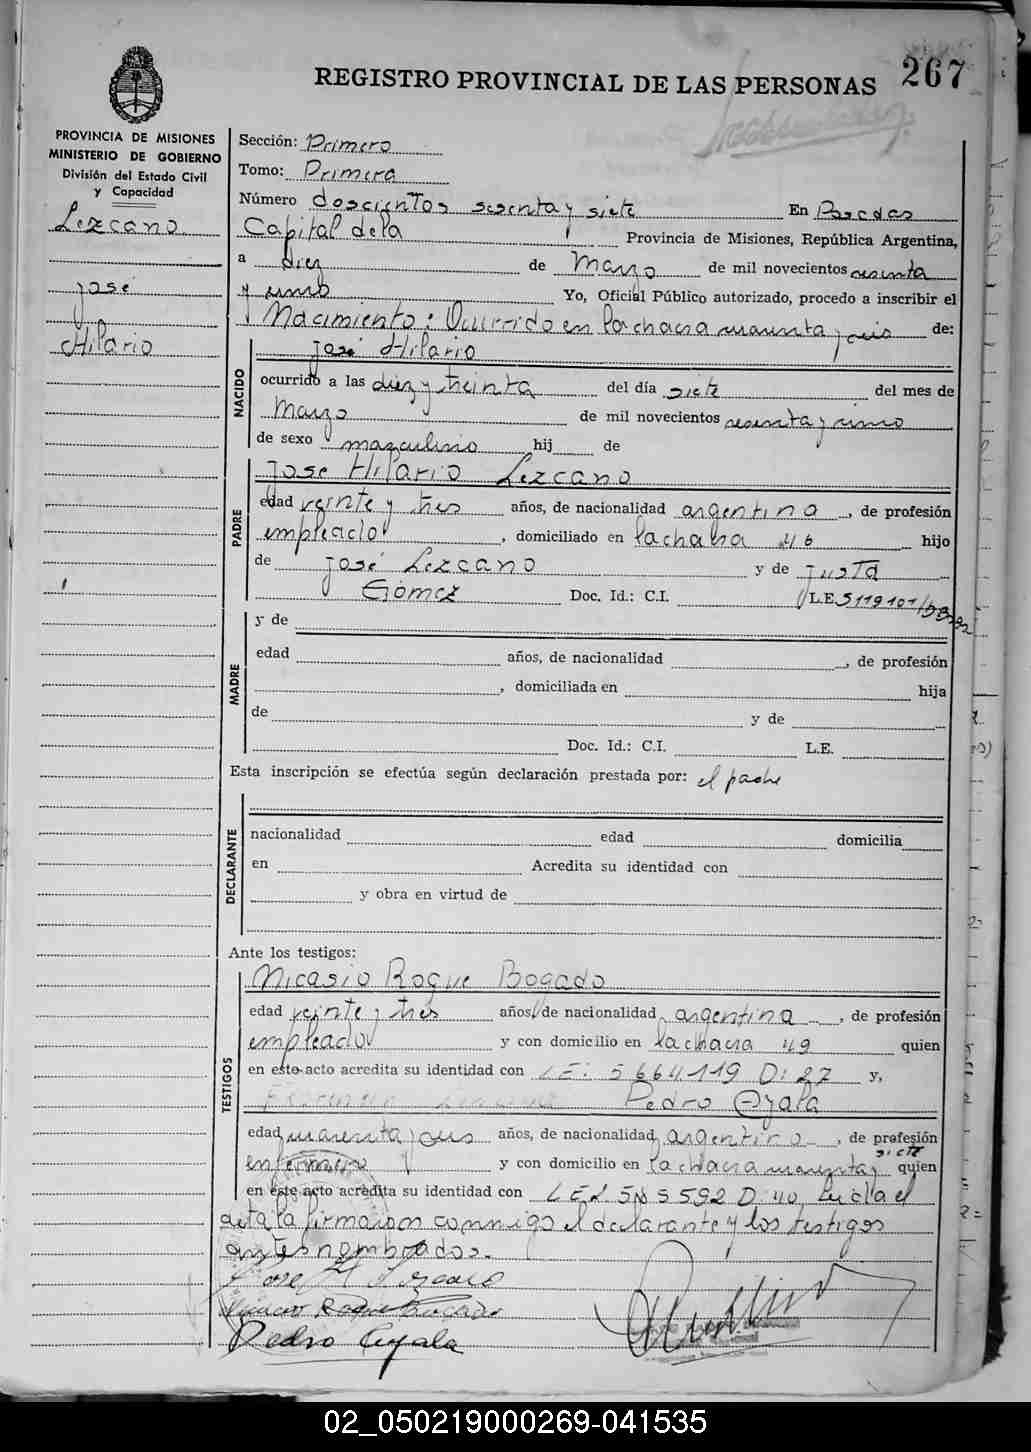 267
REGISTRO PROVINCIAL DE LAS PERSONAS
PROVINCIA DE MISIONES
MINISTERIO DE GOBIERNO
División del Estado Civil
y Capacidad
Lezcano
José
Hilario
Sección: Primero
Tomo: Primera
Número doscientos sesenta y siete En Posadas
Capital dela Provincia de Misiones, República Argentina,
a diez de Marzo de mil novecientos sesenta
y uno Yo, Oficial Público autorizado, procedo a inscribir el
Nacimiento: Ocurrido en la chacra cuarenta y seis de:
José Hilario
NACIDO
ocurrido a las diez y treinta del día siete del mes de
Marzo de mil novecientos sesenta y uno
de sexo masculino hij de
José Hilario Lezcano
PADRE
edad veinte y tres años, de nacionalidad argentina, de profesión
empleado, domiciliado en la chacra 46 hijo
de José Lezcano y de Justa
Gómez Doc. Id.: C.I. L.E.
MADRE
y de
edad años, de nacionalidad, de profesión
, domiciliada en hija
de y de
Doc. Id.: C.I. L.E.
Esta inscripción se efectúa según declaración prestada por: el padre
DECLARANTE
nacionalidad edad domicilia
en Acredita su identidad con
y obra en virtud de
Ante los testigos:
TESTIGOS
Nicasio Roque Bogado
edad veinte y tres años, de nacionalidad argentina, de profesión
empleado y con domicilio en la chacra 49 quien
en este acto acredita su identidad con LE: 5664.119 D: 27 y,
Pedro Ayala
edad cuarenta y dos años, de nacionalidad argentino, de profesión
enfermero y con domicilio en la chacra cuarenta y siete quien
en este acto acredita su identidad con D: 40 Leída el
acta la firmaron conmigo el declarante y los testigos
antes nombrados.
José H Lezcano
Nicasio Roque Bogado
Pedro Ayala
02_050219000269-041535